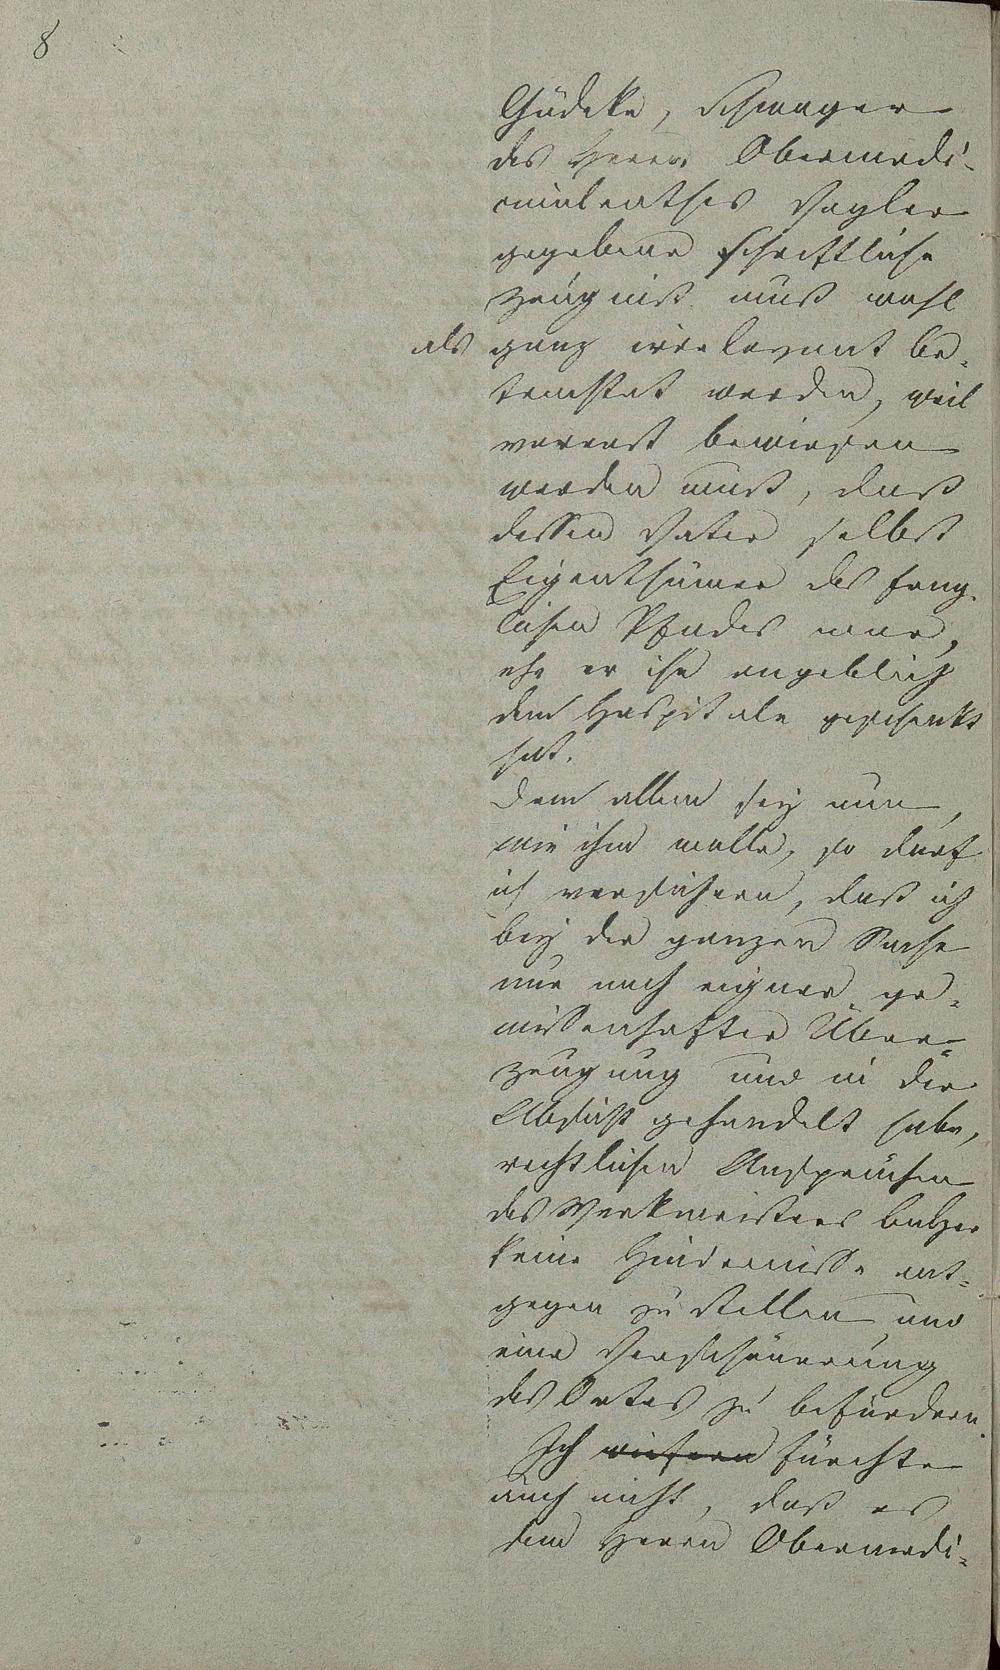 8
Gödeke, Schwager
des Herrn Obermedi-
cinalrathes Vogler
gegebene schriftliche
Zeugniß muß wohl
als ganz irrelevant be-
trachtet werden, weil
vorerst bewiesen
werden muß, daß
dessen Vater selbst
Eigenthümer des frag-
lichen Pfades war,
ehe er ihn angeblich
dem Hospitale geschenkt
hat.
Dem allem sey nun,
wie ihm wolle, so darf
ich versichern, daß ich
bey der ganzen Sache
nur nach eigner ge-
wissenhafter Über-
zeugung und in der
Absicht gehandelt habe,
rechtlichen Ansprüchen
des Werkmeisters Balzer
keine Hindernisse ent-
gegen zu stellen und
eine Verschönerung
des Ortes zu befördern.
Ich fürchte
auch nicht, daß es
dem Herrn Obermedi-